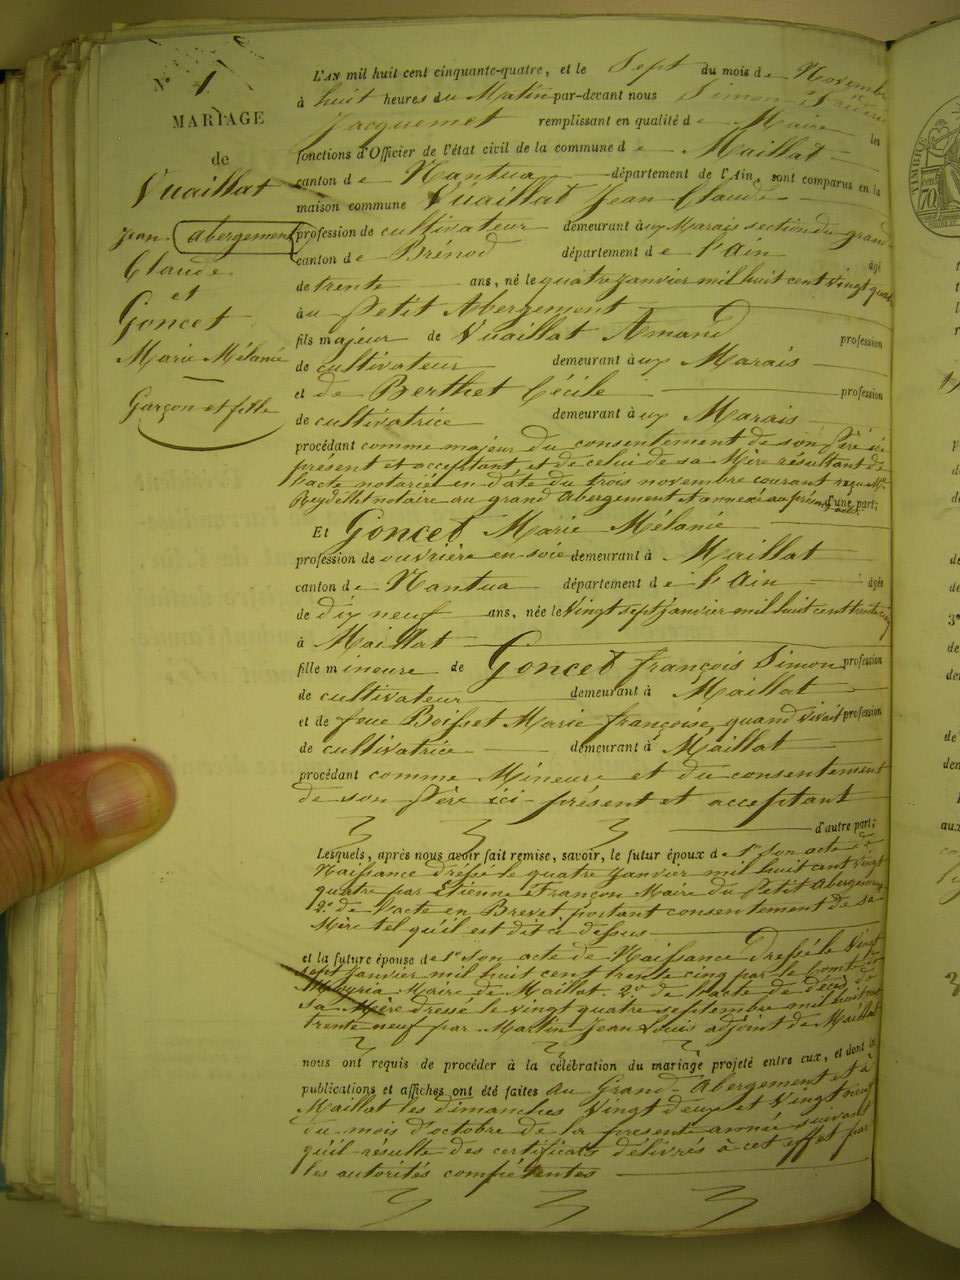 N° 1
MARIAGE
de
Vuaillat
Jean
abergement
Claude
et
Goncet
Marie Mélanie
Garçon et fille
L'AN mil huit cent cinquante-quatre, et le Sept du mois de Novembre
à huit heures du Matin par-devant nous Simon
Jacquemet remplissant en qualité de Maire les
fonctions d'Officier de l'état civil de la commune de Maillat
canton de Nantua département de l'Ain, sont comparus en la
maison commune Vuaillat Jean Claude
profession de cultivateur demeurant aux Marais section du grand
canton de Brénod département de l'Ain âgé
de trente ans, né le quatre janvier mil huit cent vingt quatre
au Petit Abergement
fils majeur de Vuaillat Amand profession
de cultivateur demeurant aux Marais
et de Berthet Cécile profession
de cultivatrice demeurant aux Marais
procédant comme majeur du consentement de son Père ici
présent et acceptant, et de celui de sa Mère résultant de
l'acte notarié en date du trois novembre courant reçu Me
Reydellet notaire au grand abergement et annexé au présent acte d'une part;
Et Goncet Marie Mélanie
profession de ouvrière en soie demeurant à Maillat
canton de Nantua département de l'Ain âgée
de dix neuf ans, née le Vingt sept janvier mil huit cent trente cinq
à Maillat
fille mineure de Goncet françois Simon profession
de cultivateur demeurant à Maillat
et de feue Boisset Marie françoise, quand vivait profession
de cultivatrice demeurant à Maillat
procédant comme Mineure et du consentement
de son Père ici présent et acceptant
d'autre part;
Lesquels, après nous avoir fait remise, savoir, le futur époux de 1° son acte de
Naissance dressé le quatre janvier mil huit cent vingt
quatre par Etienne François Maire du Petit Abergement
2° de l'acte en Brevet portant consentement de sa
Mère tel qu'il est dit ci dessus
et la future épouse de 1° son acte de Naissance dressé le Vingt
sept janvier mil huit cent trente cinq par le Comte de
Meyria Maire de Maillat. 2° de l'acte de décès de
sa Mère dressé le vingt quatre septembre mil huit cent
trente neuf par Martin Jean Louis adjoint de Maillat
nous ont requis de procéder à la célébration du mariage projeté entre eux, et dont les
publications et affiches ont été faites au Grand Abergement et à
Maillat les dimanches Vingt deux et Vingt neuf
du mois d'octobre de la présent année suivant
qu'il résulte des certificats délivrés à cet effet par
les autorités compétentes
TIMBRE
70
3°
aux